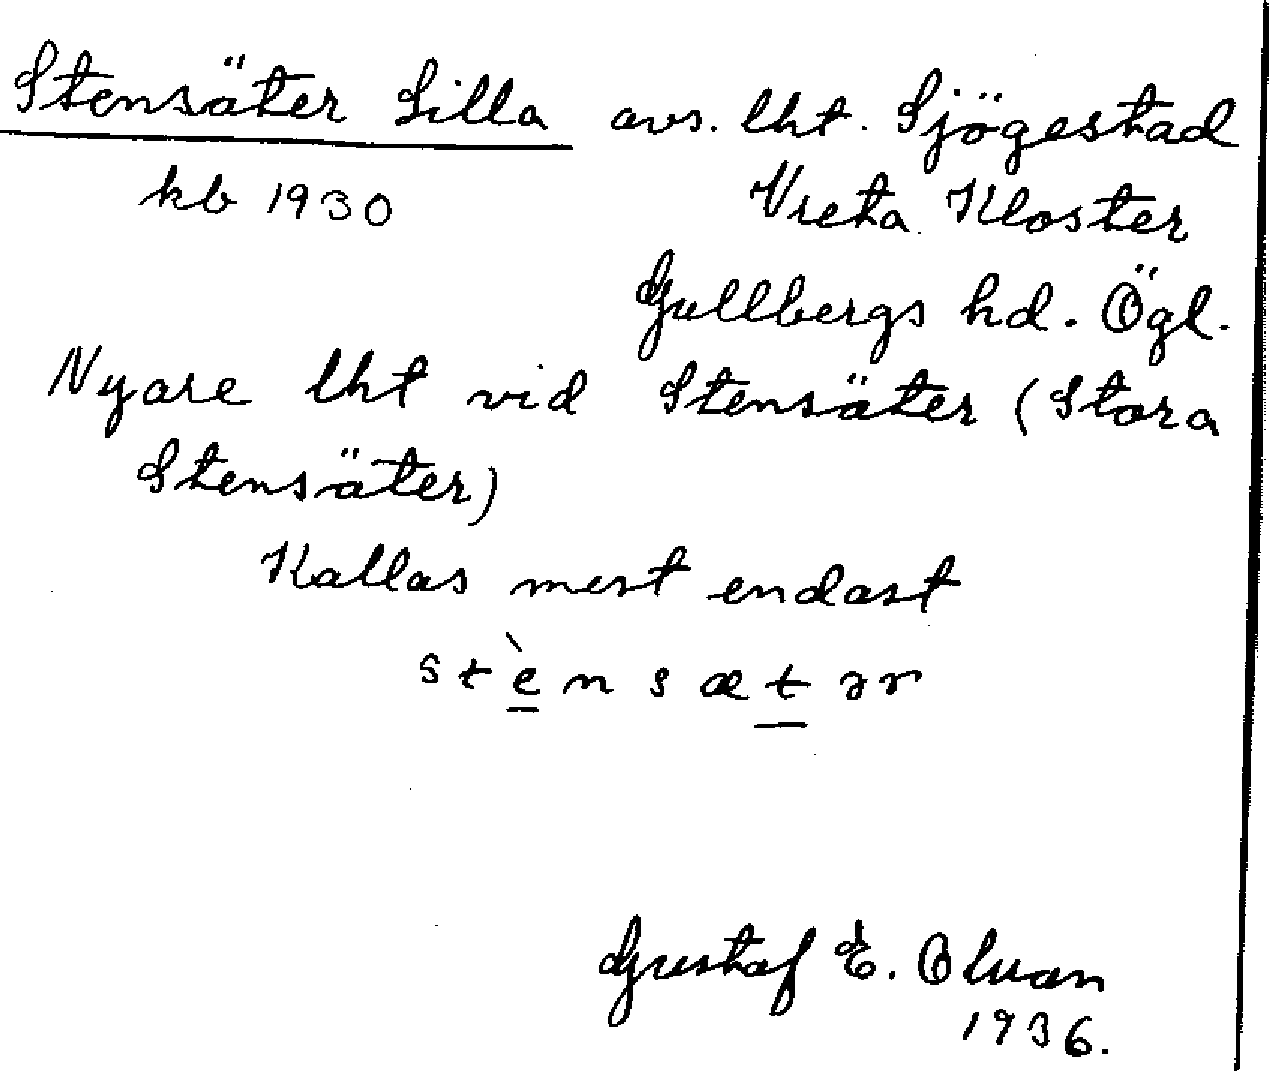 Stensäter Lilla avs. lht. Sjögestad
kb 1930 Vreta Kloster
Gullbergs hd. Ögl.
Nyare lht vid Stensäter (Stora
Stensäter)
Kallas mest endast
stènsætər
Gustaf E. Olvan
1936.